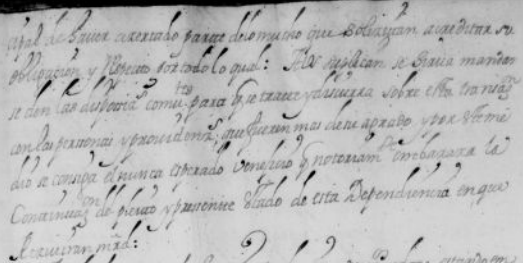 de haver acertado parte de lo mucho que solicitan acreditar su
obligacion y Respeto por todo lo qual: A V.S. suplican se sirva mandar
se den las disposiz.s comu.tes para q se trate y discurra sobre esta transaz.n
con las personas y providenz.s que fueren mas de su agrado, y por este me
dio se consiga el nunca esperado veneficio q notoriam.te embaraza la
Continuaz.on del pleito y presente estado de esta Dependiencia en que
Reciviran mrd: